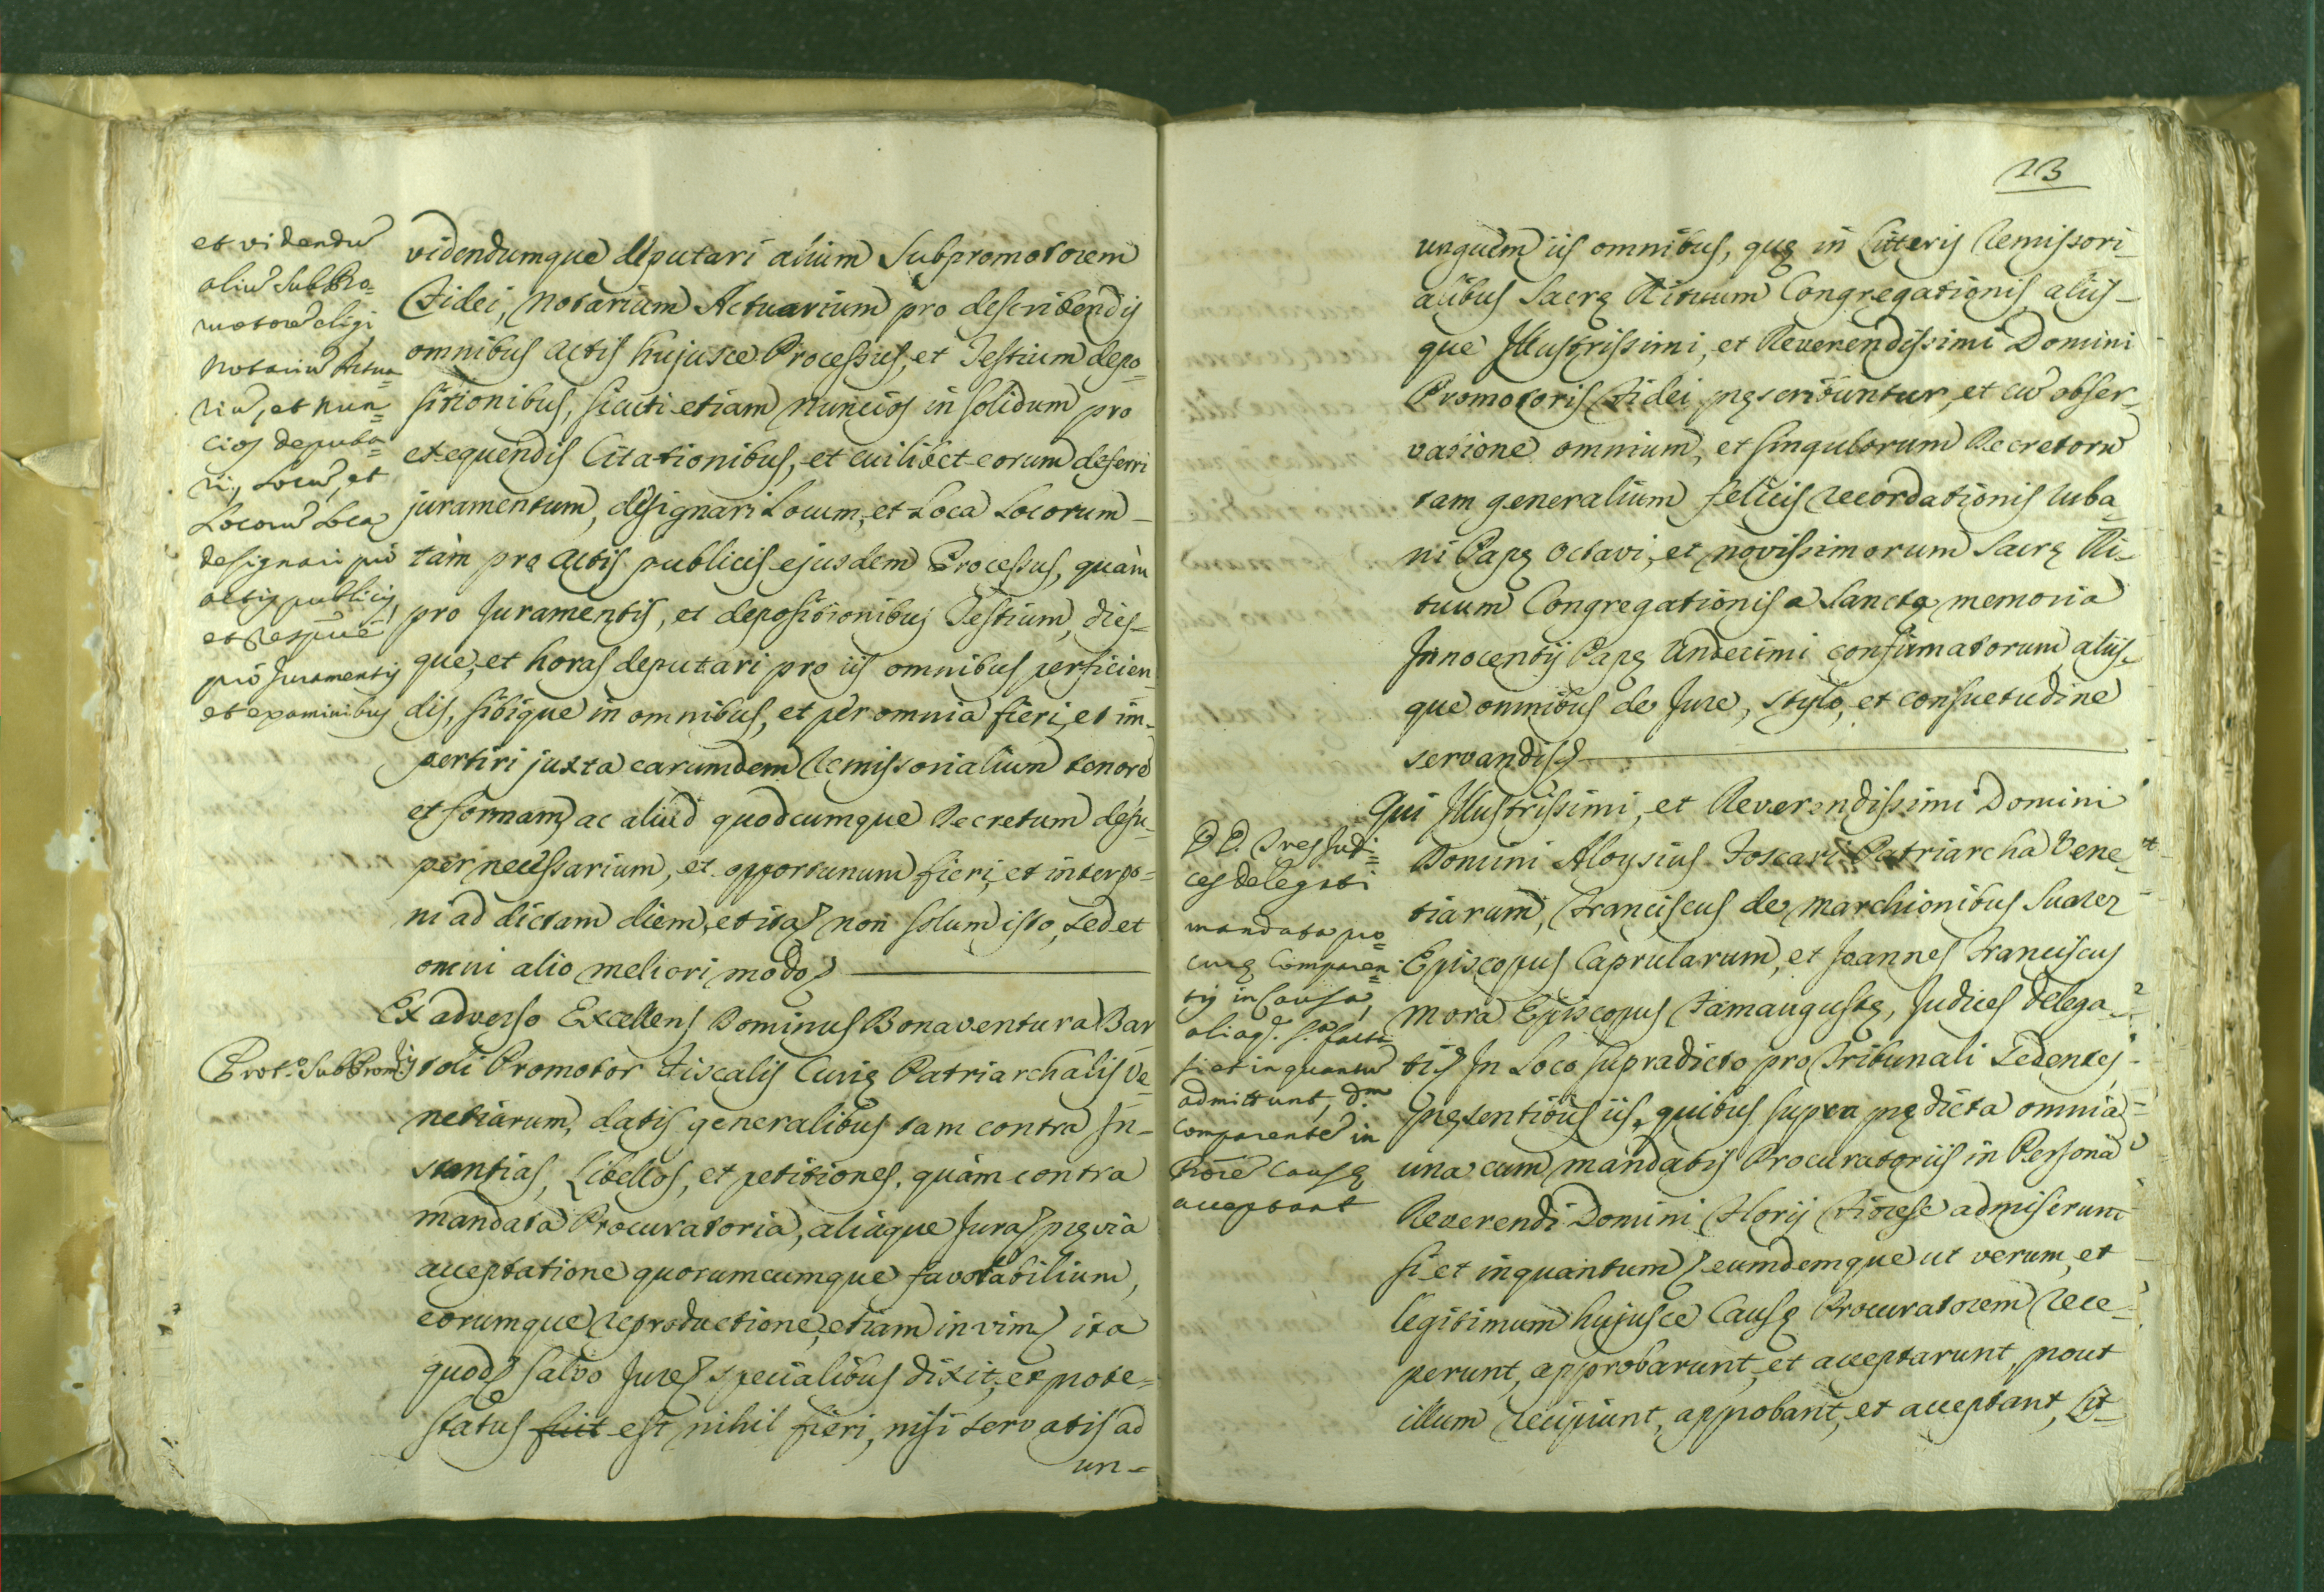 et videndu
aliu SubPro=
motore eligi
Notariu Actua=
riu, et Nun=
cios deputa=
ri, Locu, et
Locoru Loca
designari pro
actis publicis,
et respve
pro Juramentis
et examinibus
videndumque deputari alium Subpromotorem
Fidei, Notarium Actuarium pro describendis
omnibus actis hujusce Processus, et Testium depo=
sitionibus, sicuti etiam Nuncios in solidum pro
exequendis Citationibus, et cuilibet eorum deferri
juramentum, designari Locum, et Loca Locorum
tàm pro actis publicis ejusdem Processus, quàm
pro Juramentis, et depositionibus Testium, dies-
que, et horas deputari pro iis omnibus perficien_
dis, sibique in omnibus, et per omnia fieri, et im-
pertiri juxta earumdem Remissorialium tenore
et formam, ac aliud quodcumque Decretum desu-
per necessarium, et opportunum fieri, et interpo=
ni ad dictam diem, et ita non solum isto, sed et
omni alio meliori modo
Prot.o SubPromris
Ex adverso Excellens Dominus Bonaventura Bar
toli Promotor Fiscalis Curię Patriarchalis Ve=
netiarum, datis generalibus tam contra In-
stantias, Libellos, et petitiones, quàm contra
mandata Procuratoria, aliaque Jura pręvia
acceptatione quorumcumque favorabilium,
eorumque reproductione, etiam in vim ita
quod salvo Jure specialibus dixit, et prote=
status fuit est nihil fieri, nisi servatis ad
un-
23
unguem iis omnibus, quę in Litteris Remissori-
alibus Sacrę Rituum Congregationis, aliis-
que Illustrissimi, et Reverendissimi Domini
Promotoris Fidei pręscribuntur, et cu obser-
vatione omnium, et singulorum Decretoru
tam generalium felicis recordationis Urba_
ni Papę Octavi, et novissimorum Sacrę Ri-
tuum Congregationis a Sancta memoria
Innocentij Papę Undecimi confirmatorum, aliis-
que omnibus de Jure, stylo, et consuetudine
servandis
DD. Tres Judi=
ces delegati
mandata pro=
curę Comparen=
tis in Causa,
aliaq. s.a facti
si et inquantu
admittunt, D.m
Comparente in
Prore Causę
acceptant
Qui Illustrissimi, et Reverendissimi Domini
Domini Aloysius Foscari Patriarcha Vene_
tiarum, Franciscus de Marchionibus Suarez
Episcopus Caprularum, et Joannes Franciscus
Mora Episcopus Famaugustę, Judices delega-
ti In Loco supradicto pro Tribunali sedentes,
pręsentibus iis, quibus supra prędicta omnia
una cum mandatis Procuratoriis in Persona
Reverendi Domini Florij Fiorese admiserunt
si et inquantum eumdemque ut verum, et
legitimum hujusce Causę Procuratorem rece-
perunt, approbarunt, et acceptarunt, prout
illum recipiunt, approbant, et acceptant, Lit-